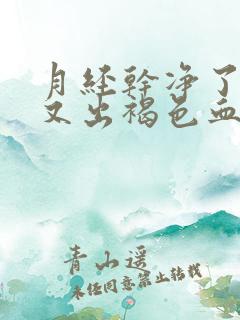 月经幹净了
又出褐色血
青山遥
未经同意禁止转载